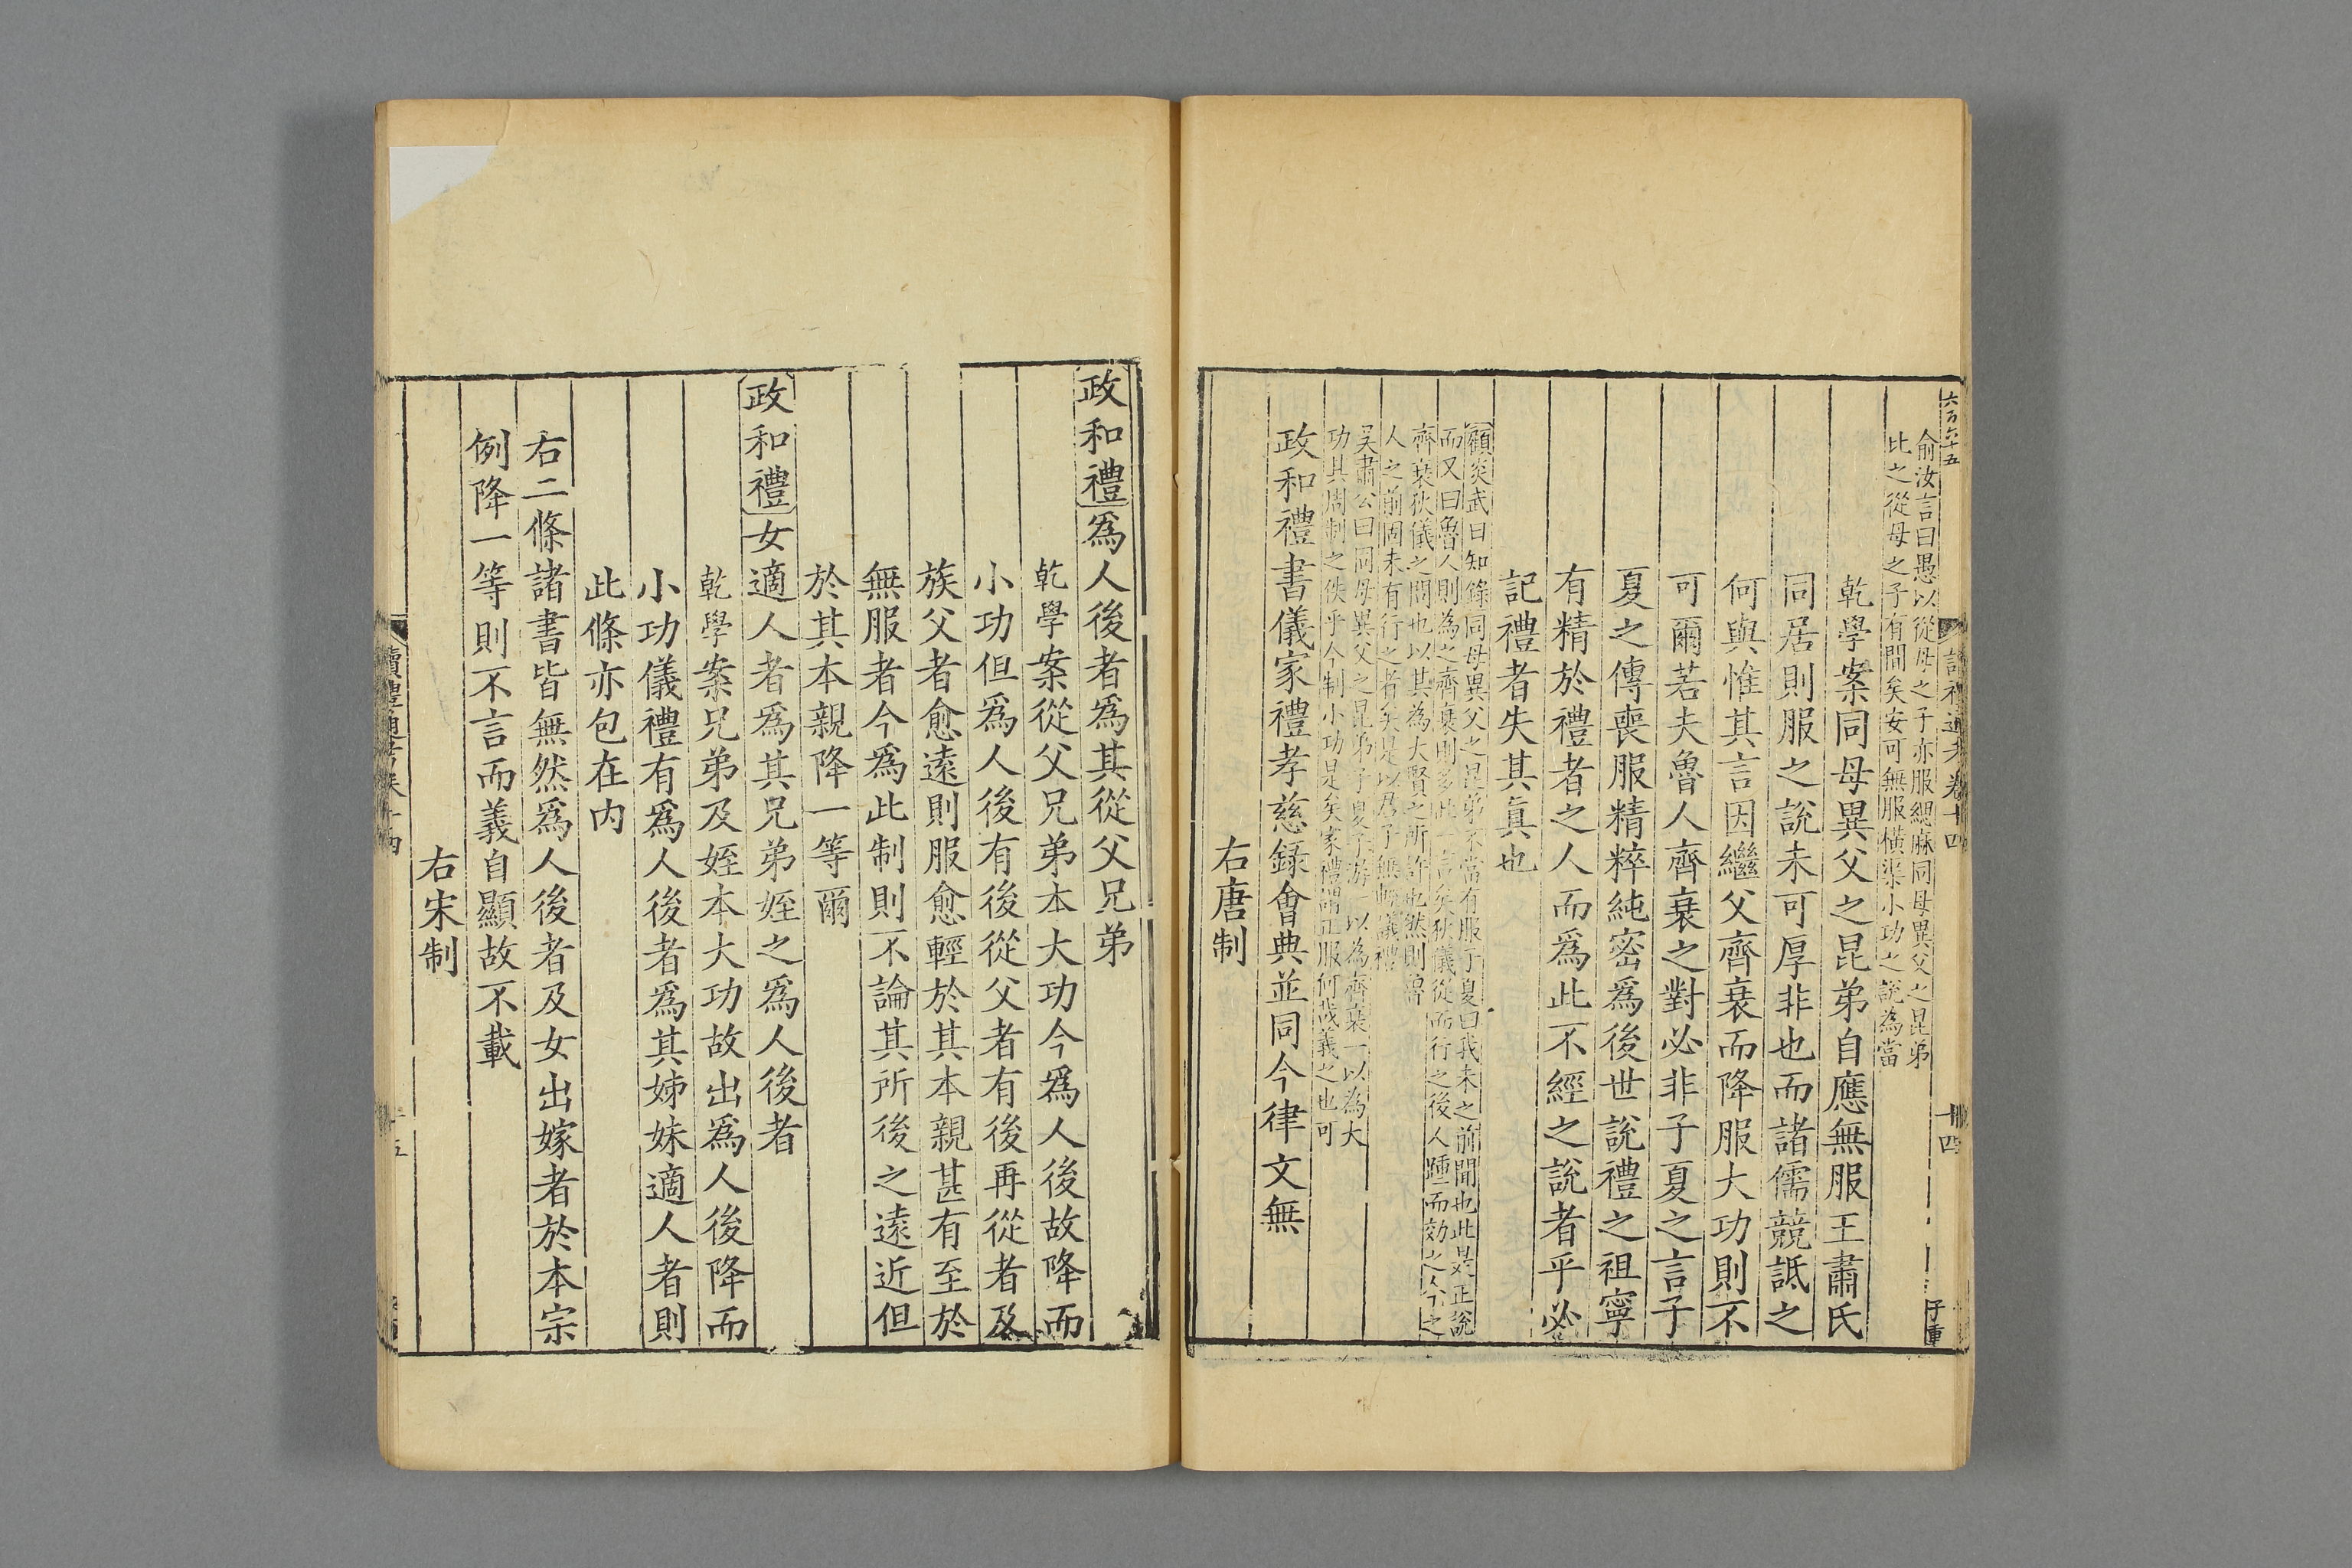 六百六十五
讀禮通考卷十四
十四
子重
俞汝言曰愚以從母之子亦服緦麻同母異父之昆弟
比之從母之子有間矣安可無服橫渠小功之說為當
乾學案同母異父之昆弟自應無服王肅氏
同居則服之說未可厚非也而諸儒競詆之
何與惟其言因繼父齊衰而降服大功則不
可爾若夫魯人齊衰之對必非子夏之言子
夏之傳喪服精粹純密爲後世說禮之祖寧
有精於禮者之人而爲此不經之說者乎必
記禮者失其真也
顧炎武日知錄同母異父之昆弟不當有服子夏曰我未之前聞也此是正說
而又曰魯人則為之齊衰則多此一言矣狄儀從而行之後人踵而効之今之
齊衰狄儀之問也以其為大賢之所許也然則魯
人之前固未有行之者矣是以君子無輕議禮
吴肅公曰同母異父之昆弟子夏子游一以為齊衰一以為大
功其周制之佚乎今制小功是矣家禮謂正服何哉義之也可
政和禮書儀家禮孝慈錄會典並同今律文無
右唐制
政和禮爲人後者爲其從父兄弟
乾學案從父兄弟本大功今爲人後故降而
小功但爲人後有後從父者有後再從者及
族父者愈遠則服愈輕於其本親甚有至於
無服者今爲此制則不論其所後之遠近但
於其本親降一等爾
政和禮女適人者爲其兄弟姪之爲人後者
乾學案兄弟及姪本大功故出爲人後降而
小功儀禮有爲人後者爲其姊妹適人者則
此條亦包在内
右二條諸書皆無然爲人後者及女出嫁者於本宗
例降一等則不言而義自顯故不載
右宋制
讀禮通考卷十四